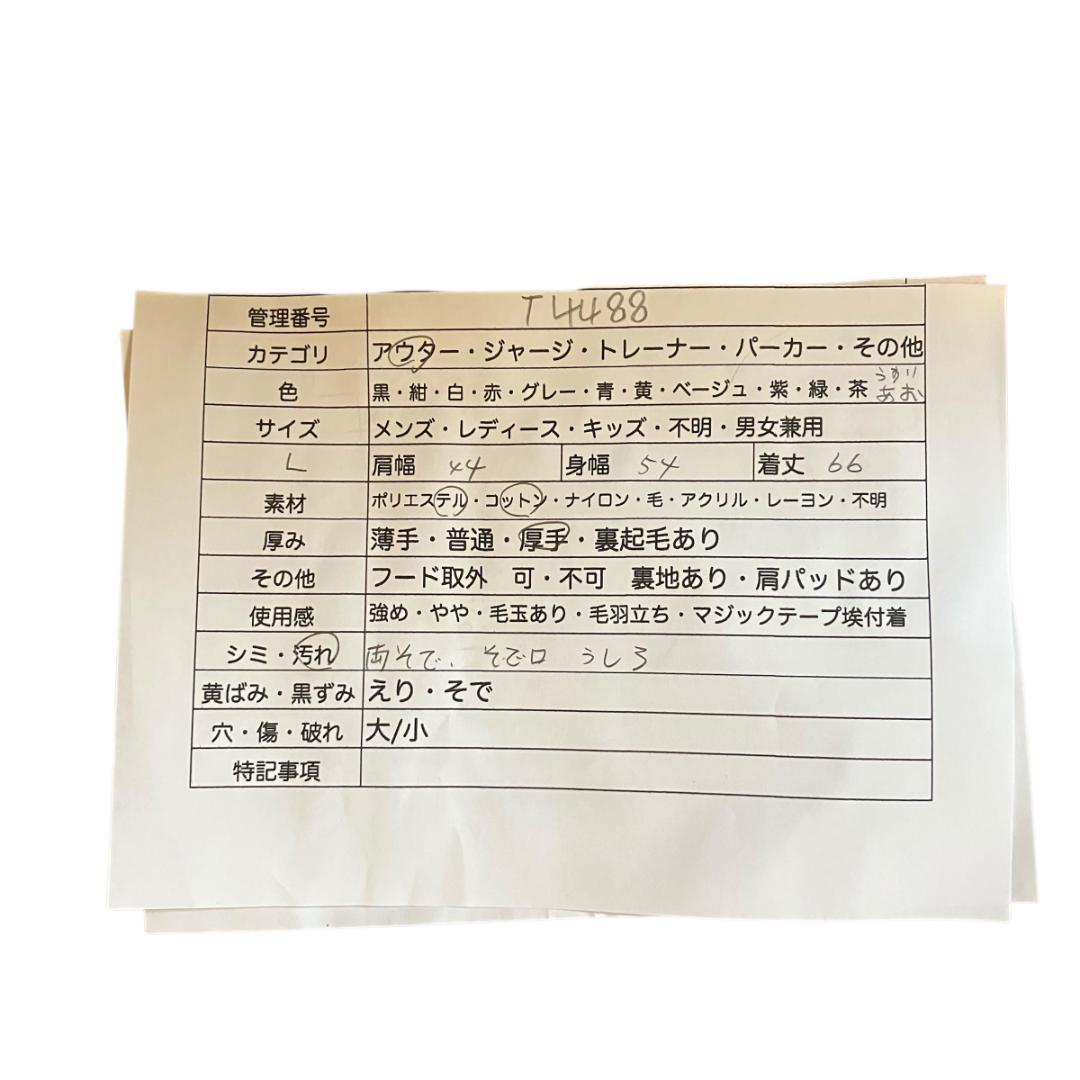 管理番号 T4488
カテゴリ アウター・ジャージ・トレーナー・パーカー・その他
色 黒・紺・白・赤・グレー・青・黄・ベージュ・紫・緑・茶 あお
サイズ メンズ・レディース・キッズ・不明・男女兼用
L 肩幅 44 身幅 54 着丈 66
素材 ポリエステル・コットン・ナイロン・毛・アクリル・レーヨン・不明
厚み 薄手・普通・厚手・裏起毛あり
その他 フード取外 可・不可 裏地あり・肩パッドあり
使用感 強め・やや・毛玉あり・毛羽立ち・マジックテープ埃付着
シミ・汚れ 両そで、そで口 うしろ
黄ばみ・黒ずみ えり・そで
穴・傷・破れ 大/小
特記事項